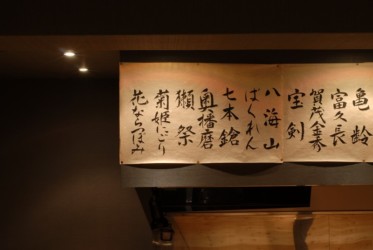 亀齢
富久長
賀茂金秀
宝剣
八海山
ばくれん
七本鎗
奥播磨
獺祭
菊姫にごり
花ならつぼみ